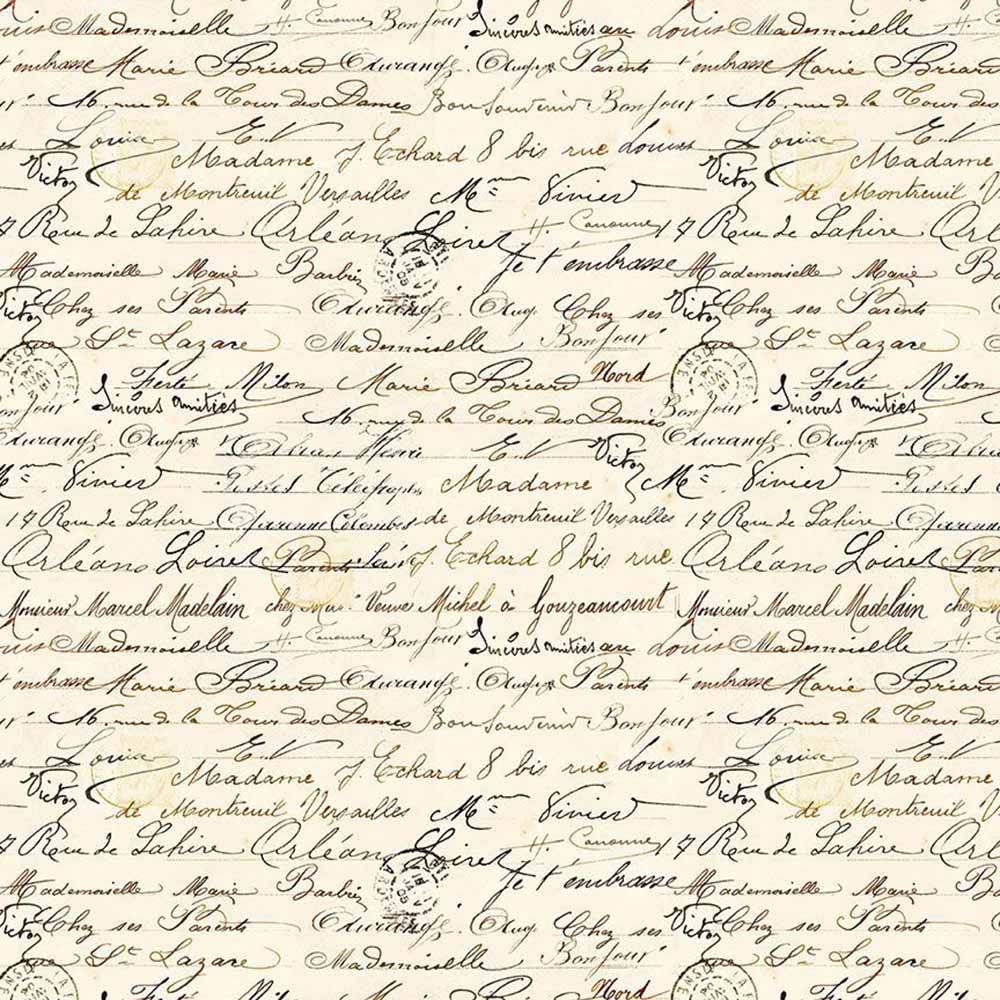 Louis Mademoiselle H. Canonne Bonjour Sincères amitiés rue Louis Mademoiselle H. Canonne Bonjour
t'embrasse Marie Briard Parents t'embrasse Marie Briard
16. rue de la Tour des Dames Bon Souvenir Bonjour 16. rue de la Tour des
Louise E.V Louise E.V
Victor Madame J. Echard 8 bis rue Louise Victor Madame
de Montreuil Versailles Mme Vivier de Montreuil
17 Rue de Lahire Orléans Loiret H. Canonne 17 Rue de Lahire
Mademoiselle Marie Barbier Je t'embrasse Mademoiselle Marie
Victor Chez ses Parents Aug. Chez ses Victor Chez ses Parents
rue St. Lazare Mademoiselle Bonjour rue St. Lazare
Ferté Milon Marie Briard Nord Ferté Milon
Bonjour Sincères amitiés 16. rue de la Tour des Dames Bonjour Sincères amitiés
Henri E.V Victor
Mme Vivier Postes Madame Mme Vivier
17 Rue de Lahire Garenne Colombes de Montreuil Versailles 17 Rue de Lahire Garenne
Orléans Loiret Parents J. Echard 8 bis rue Orléans Loiret
Monsieur Marcel Madelain chez Veuve Michel à Gouzeaucourt Monsieur Marcel Madelain chez
Louis Mademoiselle H. Canonne Bonjour Sincères amitiés rue Louis Mademoiselle H.
t'embrasse Marie Briard Parents t'embrasse Marie Briard
16. rue de la Tour des Dames Bon Souvenir Bonjour 16. rue de la Tour des
Louise E.V Louise E.V
Victor Madame J. Echard 8 bis rue Louise Victor Madame
de Montreuil Versailles Mme Vivier de Montreuil
17 Rue de Lahire Orléans Loiret H. Canonne 17 Rue de Lahire
Mademoiselle Marie Barbier Je t'embrasse Mademoiselle Marie
Victor Chez ses Parents Aug. Chez ses Victor Chez ses Parents
rue St. Lazare Mademoiselle Bonjour rue St. Lazare
Ferté Milon Marie Briard Nord Ferté Milon